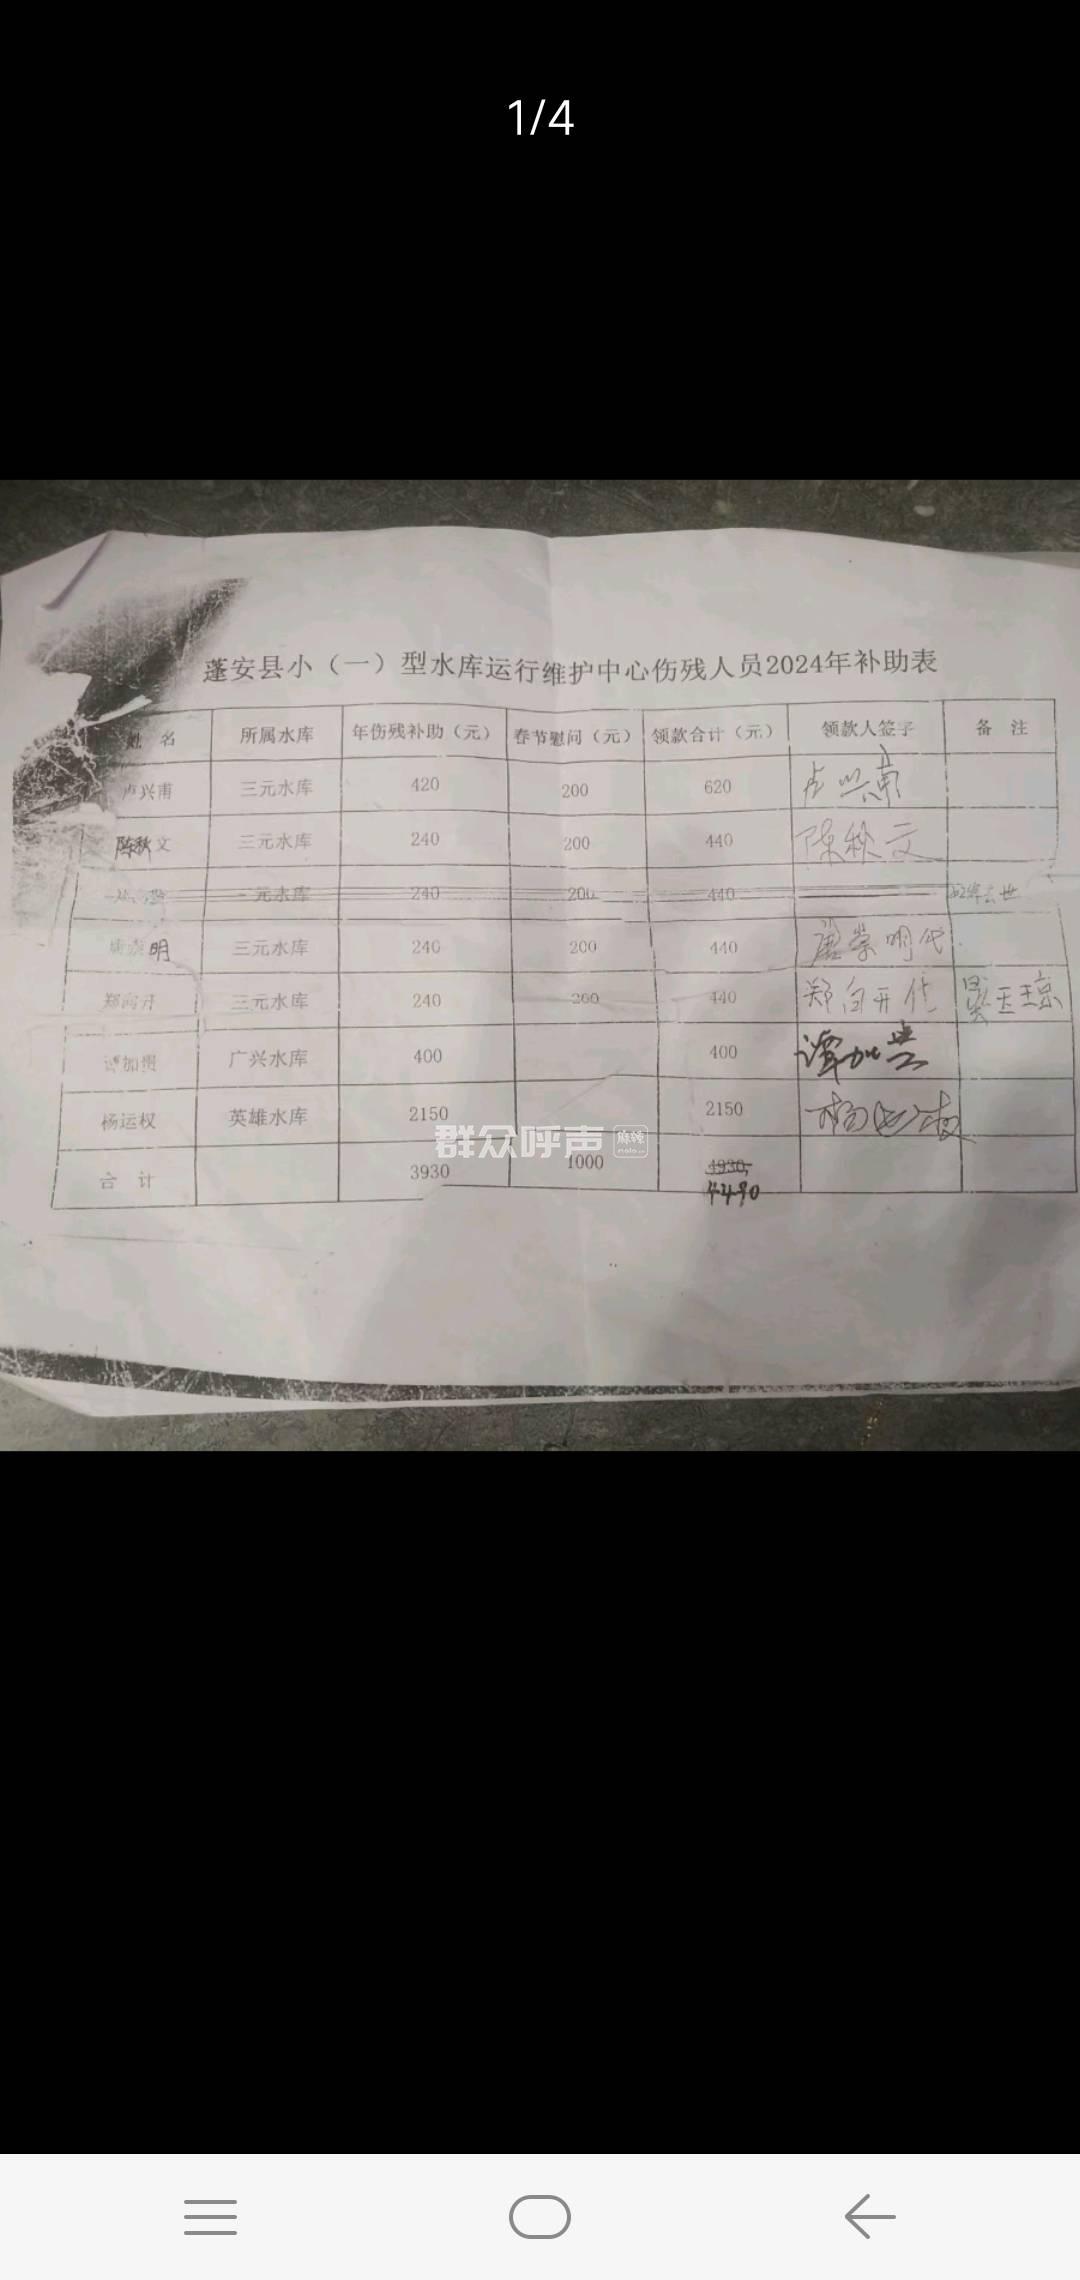 1/4
蓬安县小（一）型水库运行维护中心伤残人员2024年补助表
姓 名 所属水库 年伤残补助（元） 春节慰问（元） 领款合计（元） 领款人签字 备 注
卢兴甫 三元水库 420 200 620 卢兴甫
陈秋文 三元水库 240 200 440 陈秋文
三元水库 240 200 440 去世
唐崇明 三元水库 240 200 440 唐崇明代
郑向开 三元水库 240 200 440 郑向开代 玉琼
谭加贵 广兴水库 400 400 谭加贵
杨运权 英雄水库 2150 2150 杨运权
合 计 3930 1000 4930
4490
群众呼声 麻辣